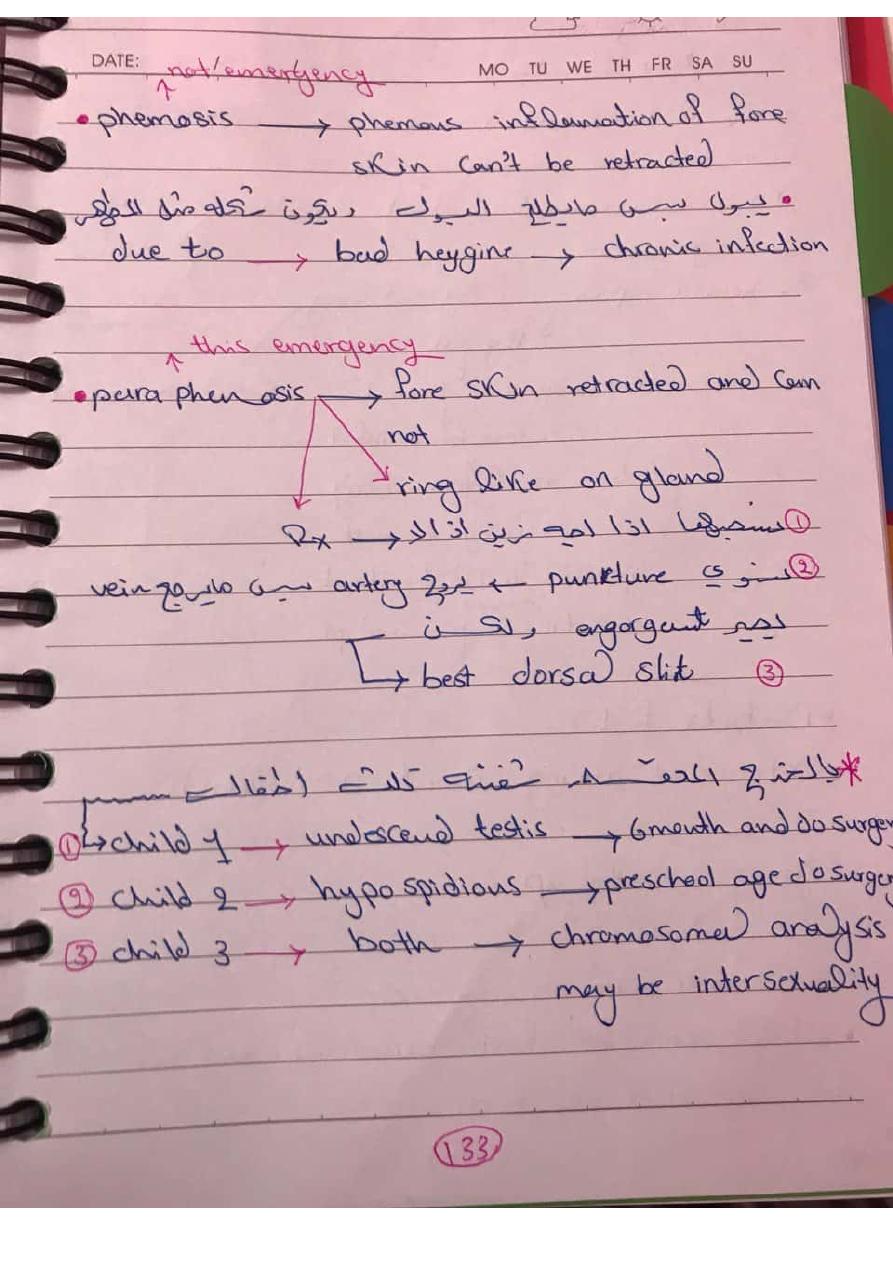 DATE: not/emergency MO TU WE TH FR SA SU
• phemosis → phemous inflammation of fore
skin can't be retracted
• يبول بس مايطلع البول ويكون شكله مثل
due to → bad heygine → chronic infection
this emergency
• para phemosis → fore skin retracted and can
not
ring like on gland
Rx → ① نسحبها اذا اجه زين اذا لا
② نسوي puncture ← يرجع artery بس مايرجع vein
يصير engorgant ولكن
→ best dorsal slit ③
* شفنه ثلاث اطفال
① → child 1 → undescend testis → 6 mouth and do surger
② child 2 → hypospidious → preschool age do surger
③ child 3 → both → chromosomal analysis
may be intersexuality
133